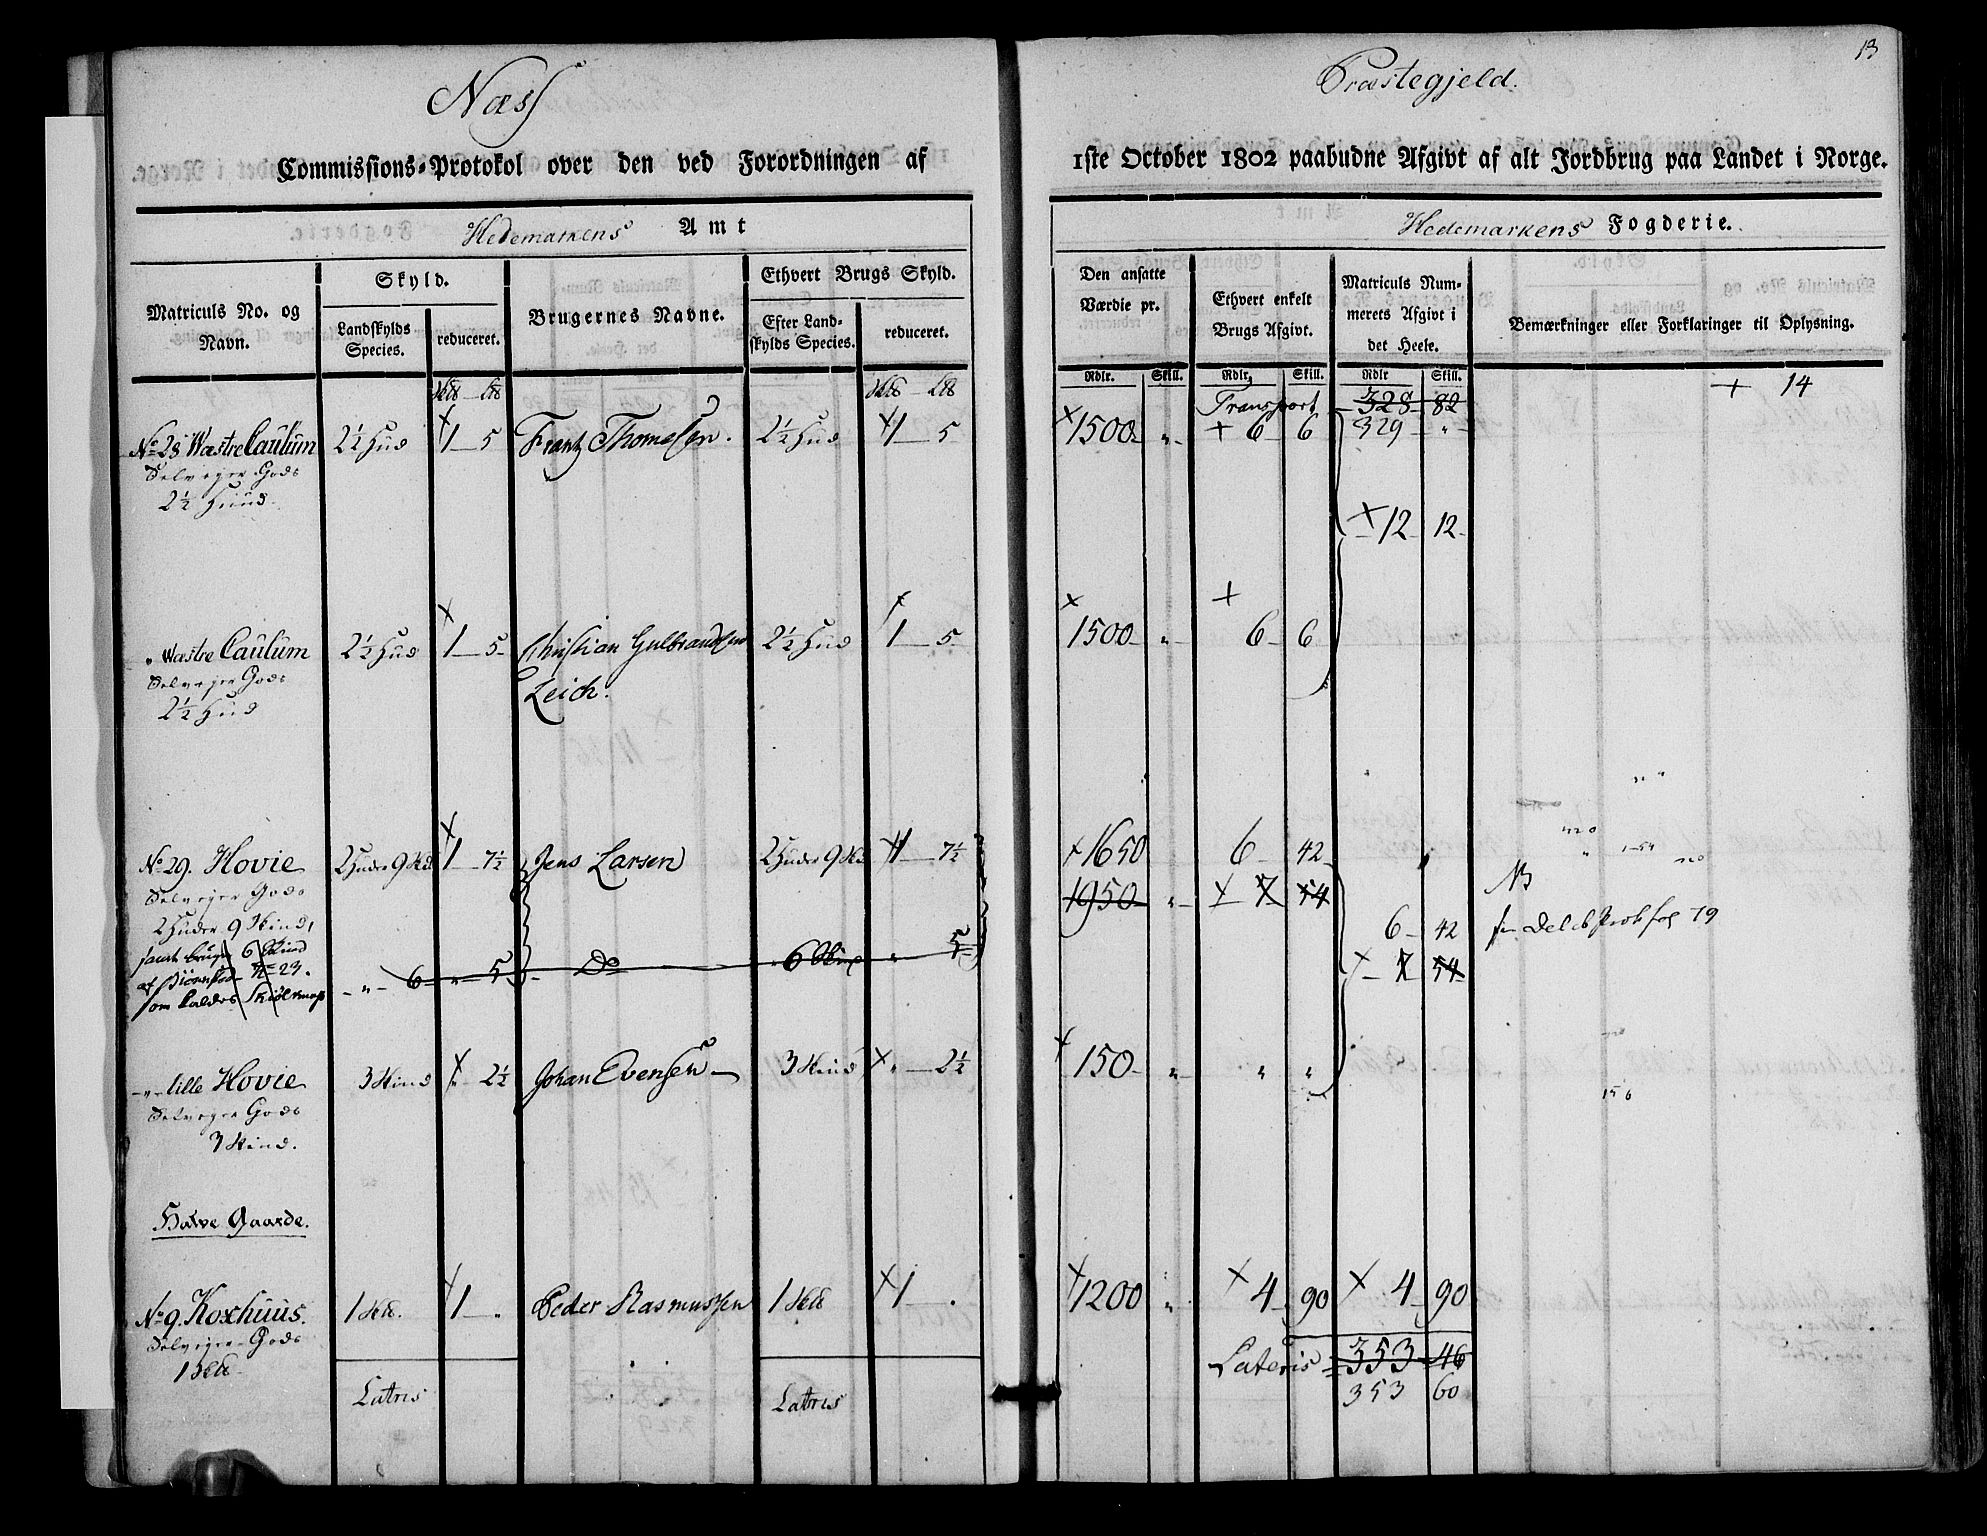 13
Næss Præstegjeld.
Commissions-Protokol over den ved Forordningen af 1ste October 1802 paabudne Afgivt af alt Jordbrug paa Landet i Norge.
Hedemarkens Amt
Hedemarkens Fogderie.
Matriculs No. og Navn.
Skyld.
Landskylds Species.
reduceret.
Brugernes Navne.
Ethvert Brugs Skyld.
Efter Landskylds Species.
reduceret.
Den ansatte Værdie pr.
Ethvert enkelt Brugs Afgivt.
Matriculs Nummerets Afgivt i det Heele.
Bemærkninger eller Forklaringer til Oplysning.
Rdlr. Skill. Rdlr. Skill. Rdlr Skill.
Transport 328 82
+ 14
No 28 Wæstre Caulum 2½ Hud 1 5 Frantz Thomesen. 2½ Hud 1 5 1500 „ 6 6 329 „
Selveyer Gods
2½ Huud
12 12
„ Wæstre Caulum 2½ Hud 1 5 Christian Gulbrandsen 2½ Hud 1 5 1500 „ 6 6
Selveyer Gods Leich.
2½ Hud
No 29. Hovie 2 Huder 9 Skd 1 7½ Jens Larsen 2 Huder 9 Skd 1 7½ 1650 6 42
Selveyer Gods 1950 „ 7 54 NB
2 Huder 9 Skind, 6 42 Prot fol 79
6 Skind 7 54
No 23. „ 6 „ 5 Do 6 Skind „ 5
som kaldes
„ lille Hovie 3 Skind „ 2½ Johan Evensen 3 Skind „ 2½ 150 „ „ „
Selveyer Gods
3 Skind.
Halve Gaarde.
No 9. Koxhuus. 1 1 „ Peder Rasmussen 1 1 „ 1200 „ 4 90 4 90
Selveyer Gods
1
Lateris 353 46
Latris Latris 353 60